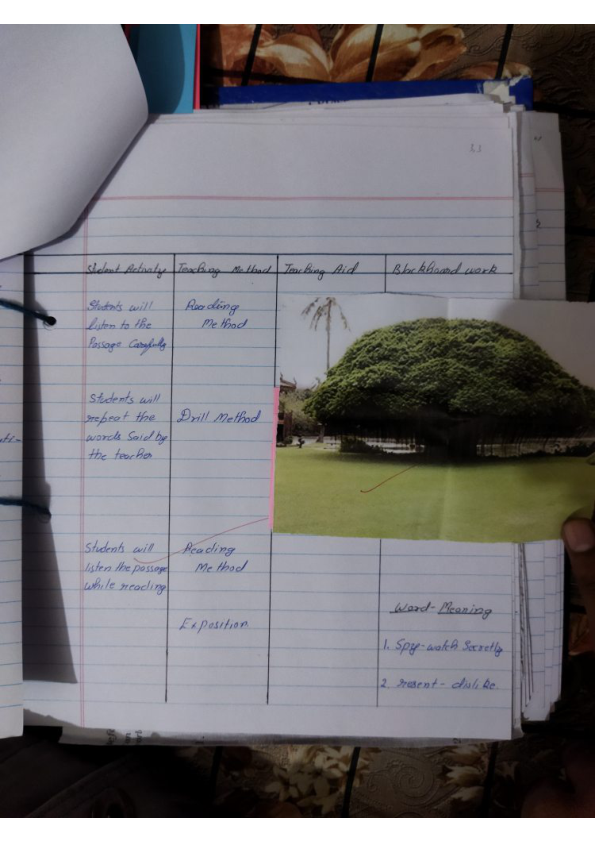 Student Activity Teaching Method Teaching Aid Blackboard work
Students will
listen to the
Passage Carefully
Reading
Method
Students will
repeat the
words Said by
the teacher
Drill Method
Students will
listen the passage
while reading
Reading
Method
Exposition
Word-Meaning
1. Spy-watch Secretly
2. resent - dislike